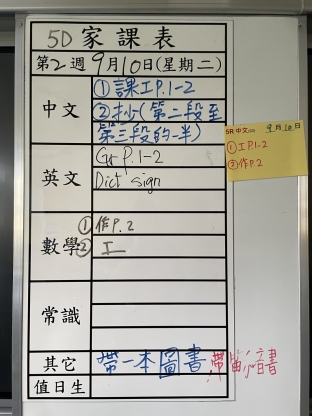 5D 家課表
第2週 9月10日(星期二)
中文
①課工P.1-2
②抄(第二段至
第三段的一半)
5R 中文 9月10日
①工P.1-2
②作P.2
英文
Gr P.1-2
Dict sign
數學
①作P.2
②工
常識
其它
帶一本圖書 帶笛子音書
值日生